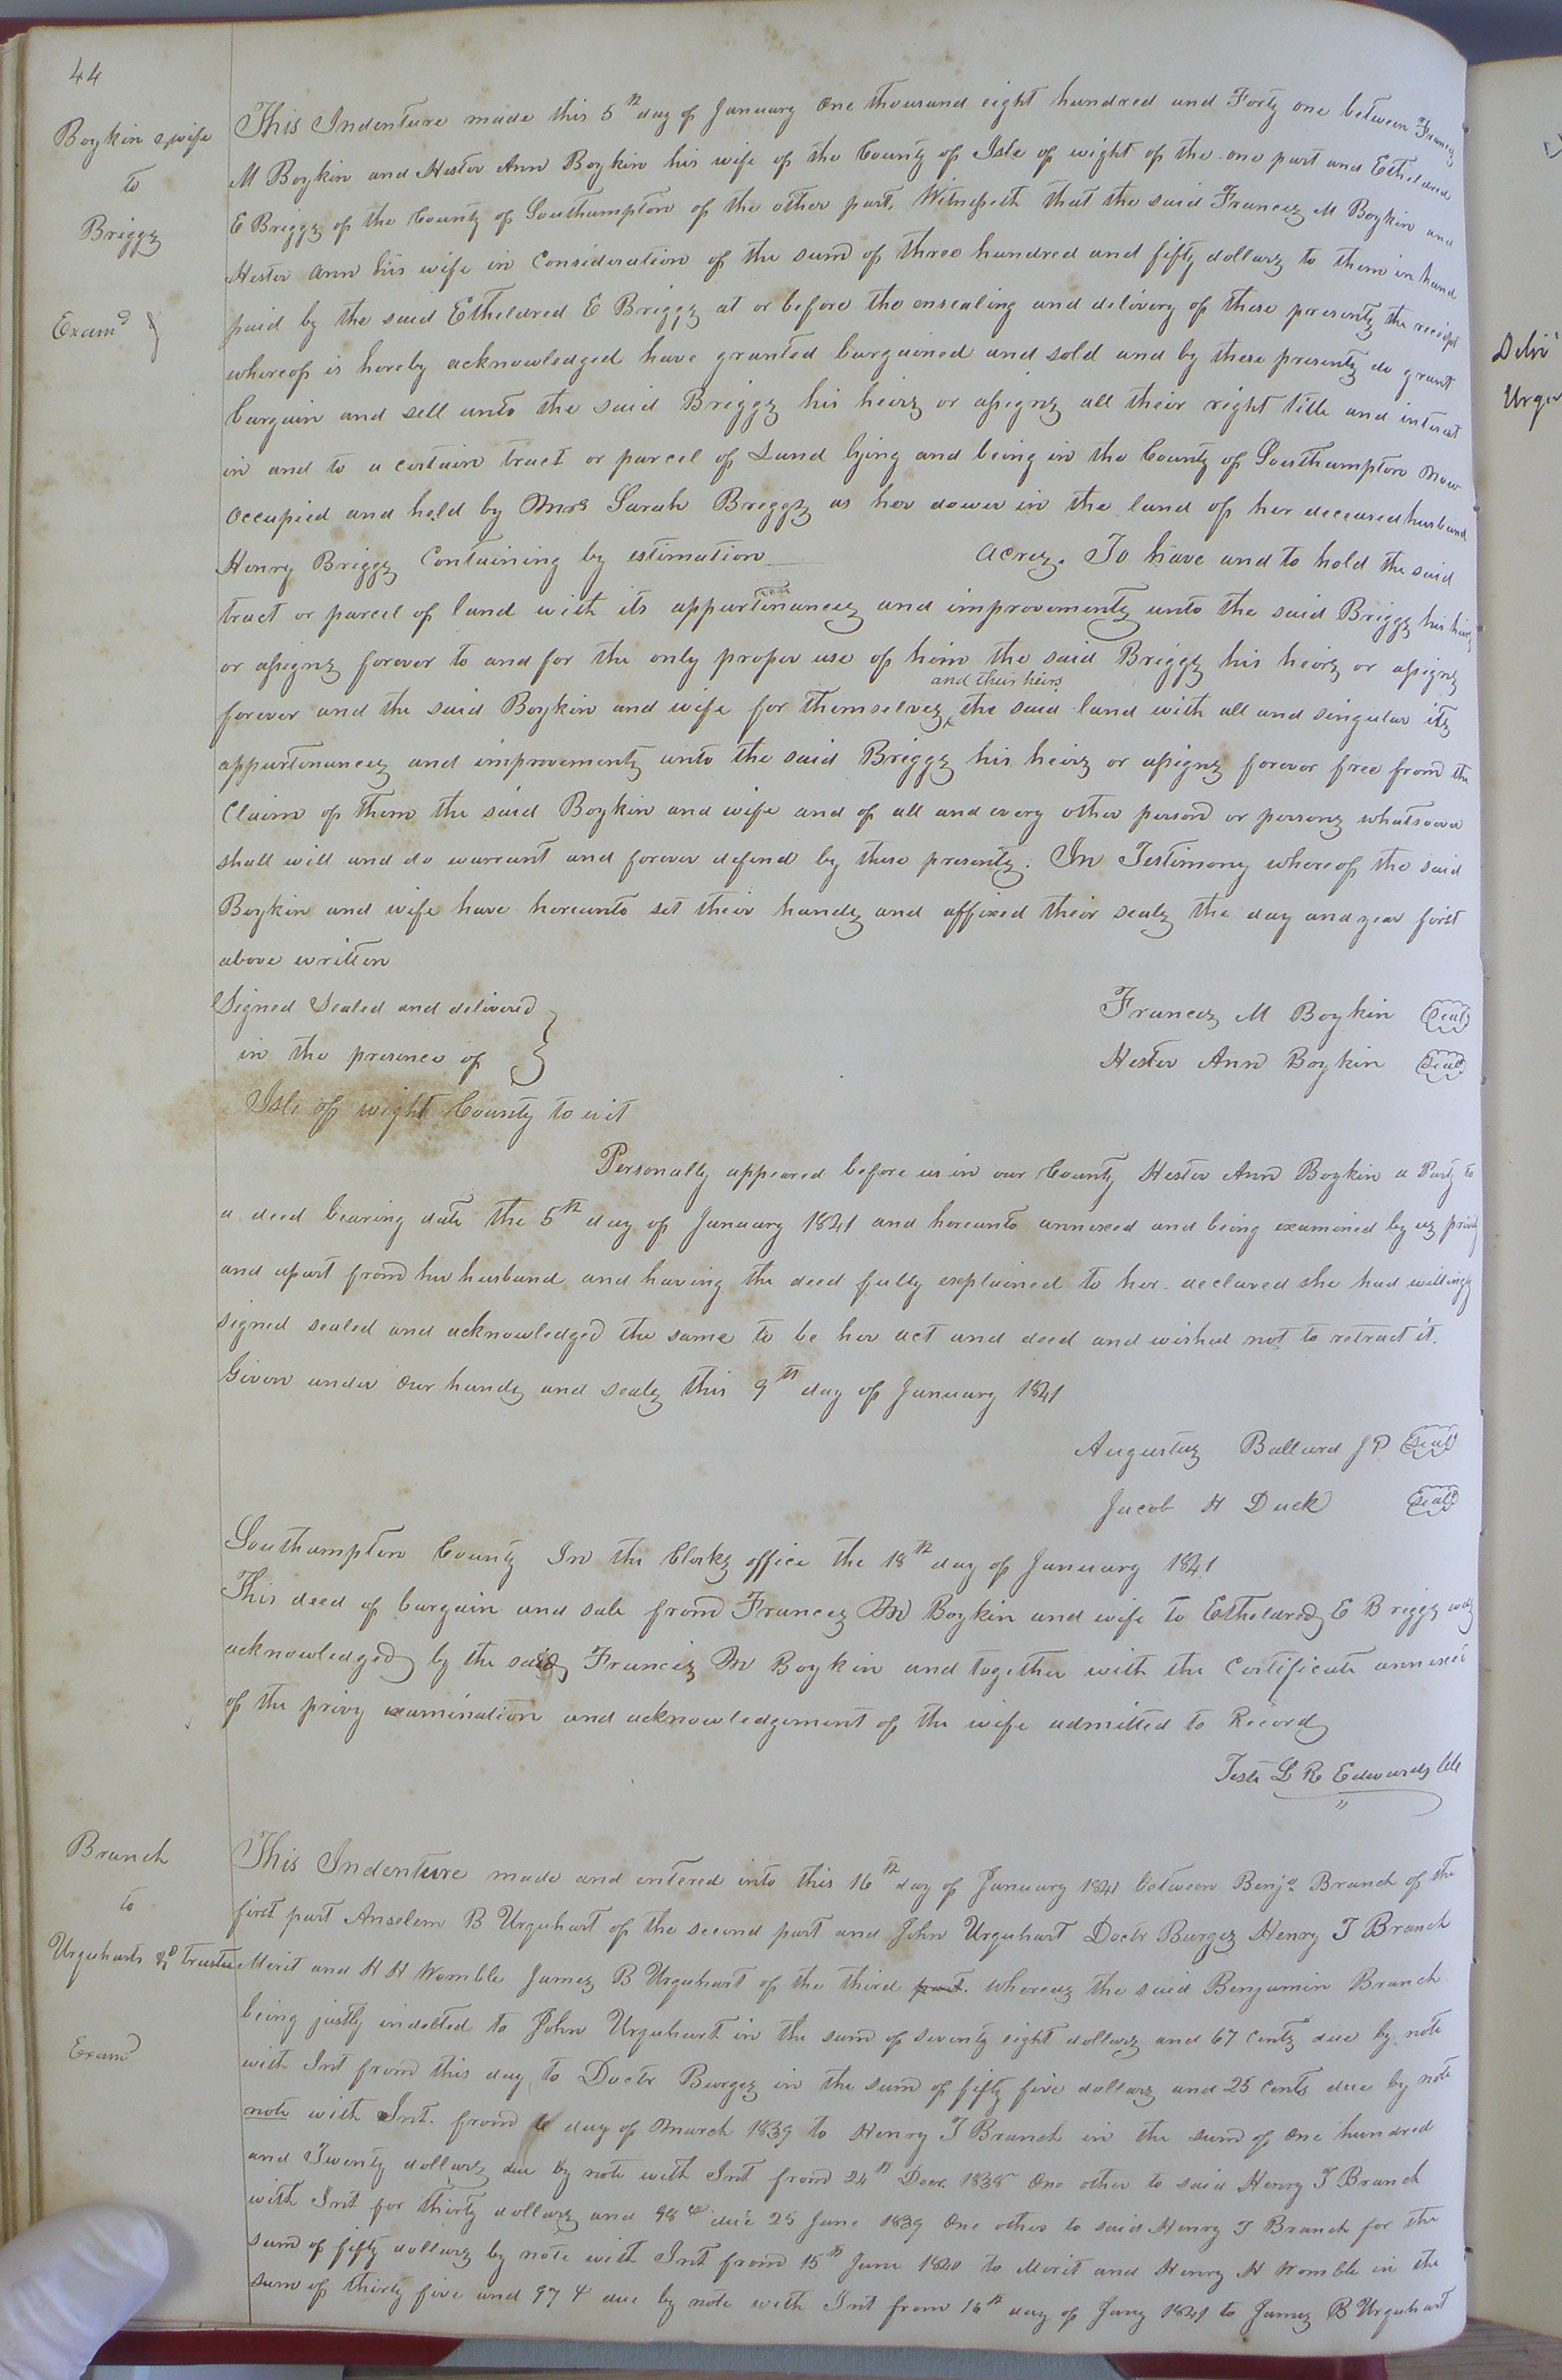 44
Boykin & wife
to
Briggs
Examd
This Indenture made this 5th day of January One thousand eight hundred and Forty one between Frances
M Boykin and Hester Ann Boykin his wife of the County of Isle of wight of the one part and Etheldred
E Briggs of the County of Southampton of the other part, Witnesseth that the said Frances M Boykin and
Hester Ann his wife in Consideration of the sum of three hundred and fifty dollars to them in hand
paid by the said Etheldred E Briggs at or before the ensealing and delivery of these presents the receipt
whereof is hereby acknowledged have granted bargained and sold and by these presents do grant
bargain and sell unto the said Briggs his heirs or assigns all their right title and interest
in and to a certain tract or parcel of Land lying and being in the County of Southampton now
Occupied and held by Mrs Sarah Briggs as her dower in the land of her deceased husband
Henry Briggs Containing by estimation Acres. To have and to hold the said
tract or parcel of land with its appurtenances and improvements unto the said Briggs his heirs
or assigns forever to and for the only proper use of him the said Briggs his heirs or assigns
and their heirs
forever and the said Boykin and wife for themselves the said land with all and singular its
appurtenances and improvements unto the said Briggs his heirs or assigns forever free from the
Claim of them the said Boykin and wife and of all and every other person or persons whatsoever
shall will and do warrant and forever defend by these presents. In Testimony whereof the said
Boykin and wife have hereunto set their hands and affixed their seals the day and year first
above written
Signed Sealed and delivered
in the presence of
Frances M Boykin Seal
Hester Ann Boykin Seal
Isle of wight County to wit
Personally appeared before us in our County Hester Ann Boykin a Party to
a deed bearing date the 5th day of January 1841 and hereunto annexed and being examined by us privily
and apart from her husband and having the deed fully explained to her declared she had willingly
signed sealed and acknowledged the same to be her act and deed and wished not to retract it.
Given under Our hands and seals this 9th day of January 1841
Augustus Ballard JP Seal
Jacob H Duck Seal
Southampton County In the Clerks office the 18th day of January 1841
This deed of bargain and sale from Frances M Boykin and wife to Etheldred E Briggs was
acknowledged by the said Frances M Boykin and together with the Certificate annexed
of the privy examination and acknowledgement of the wife admitted to Record
Teste L R Edwards Clk
Branch
to
Urquharts &c trustee
Examd
This Indenture made and entered into this 16th day of January 1841 between Benja Branch of the
first part Anselem B Urquhart of the second part and John Urquhart Doctr Burges Henry T Branch
Merit and H H Womble James B Urquhart of the third part. whereas the said Benjamin Branch
being justly indebted to John Urquhart in the sum of seventy eight dollars and 67 Cents due by note
with Int from this day, to Doctr Burges in the sum of fifty five dollars and 25 Cents due by note
note with Int. from day of March 1839 to Henry T Branch in the sum of One hundred
and Twenty dollars due by note with Int from 24th Decr 1838 One other to said Henry T Branch
with Int for thirty dollars and 98 cts due 25 June 1839 One other to said Henry T Branch for the
sum of fifty dollars by note with Int from 15th June 1840 to Merit and Henry H Womble in the
sum of thirty five and 97 cts due by note with Int from 16th day of Jany 1841 to James B Urquhart